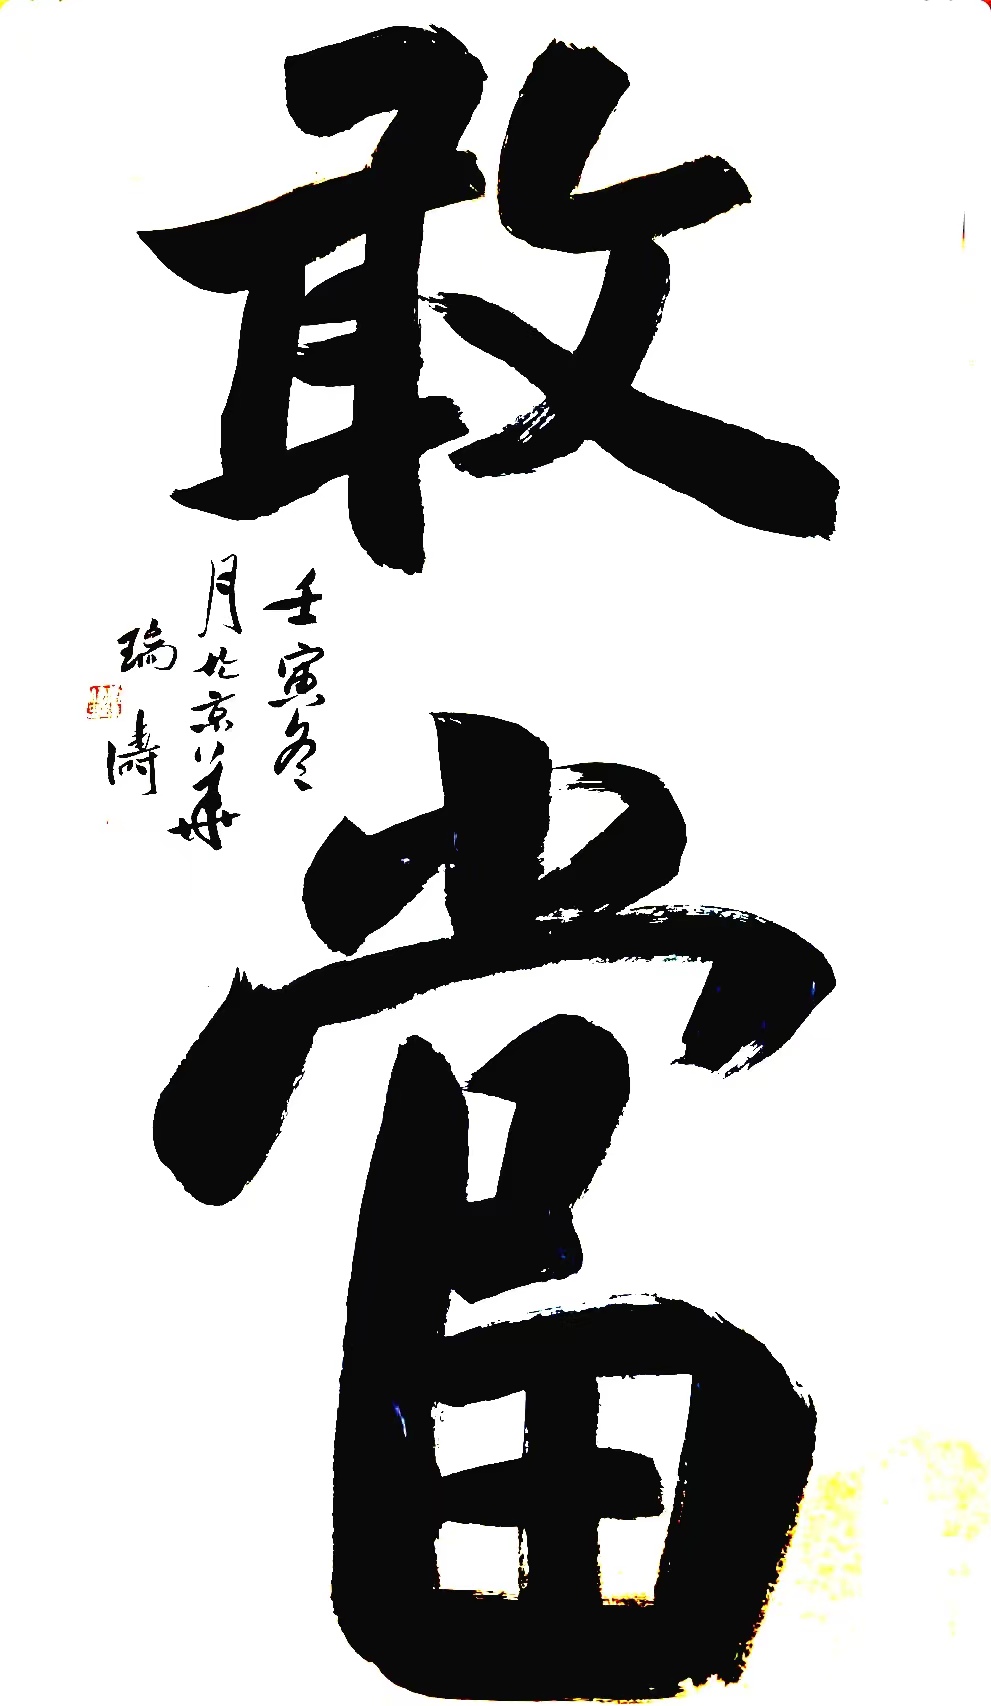 敢當
壬寅冬
月於京華
瑞濤